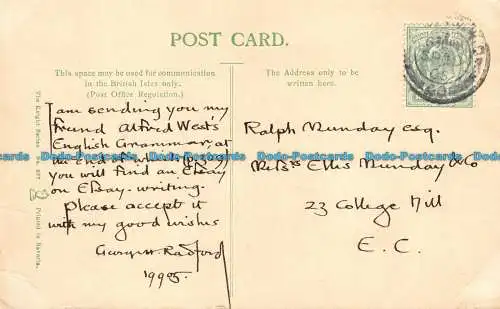 POST CARD.
This space may be used for communication
in the British Isles only.
(Post Office Regulation.)
The Address only to be
written here.
I am sending you my
friend Alfred West's
English Grammar, at
the end of
you will find an Essay
on Essay-writing.
Please accept it
with my good wishes
George H. Radford
Ralph Munday Esq.
Ellis Munday & Co
23 College Hill
E. C.
The Knight Series
Printed in Bavaria.
Todo-Postcards.com Todo-Postcards.com